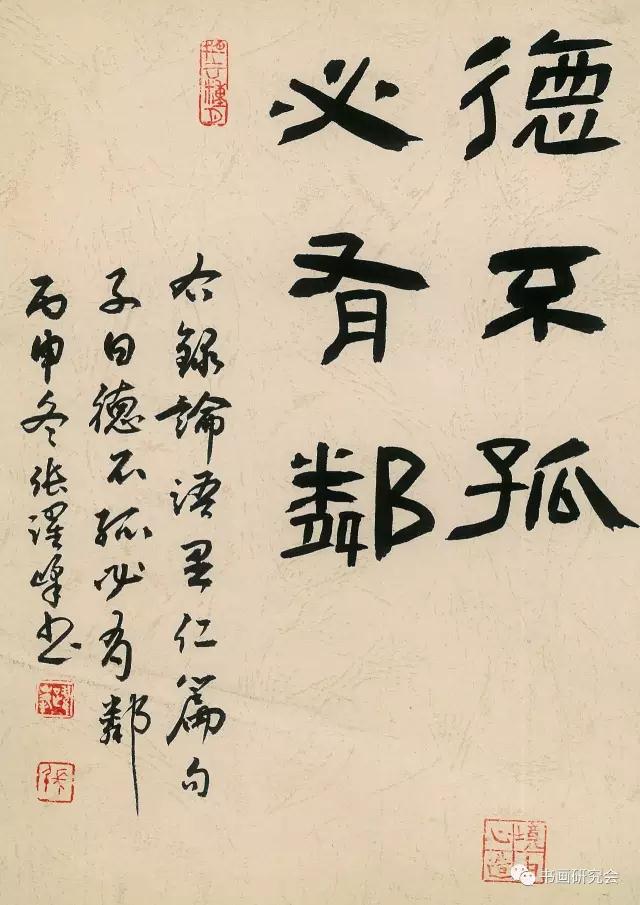 德不孤
必有鄰
右錄論語里仁篇句
子曰德不孤必有鄰
丙申冬張澤峰書
境由心造
书画研究会